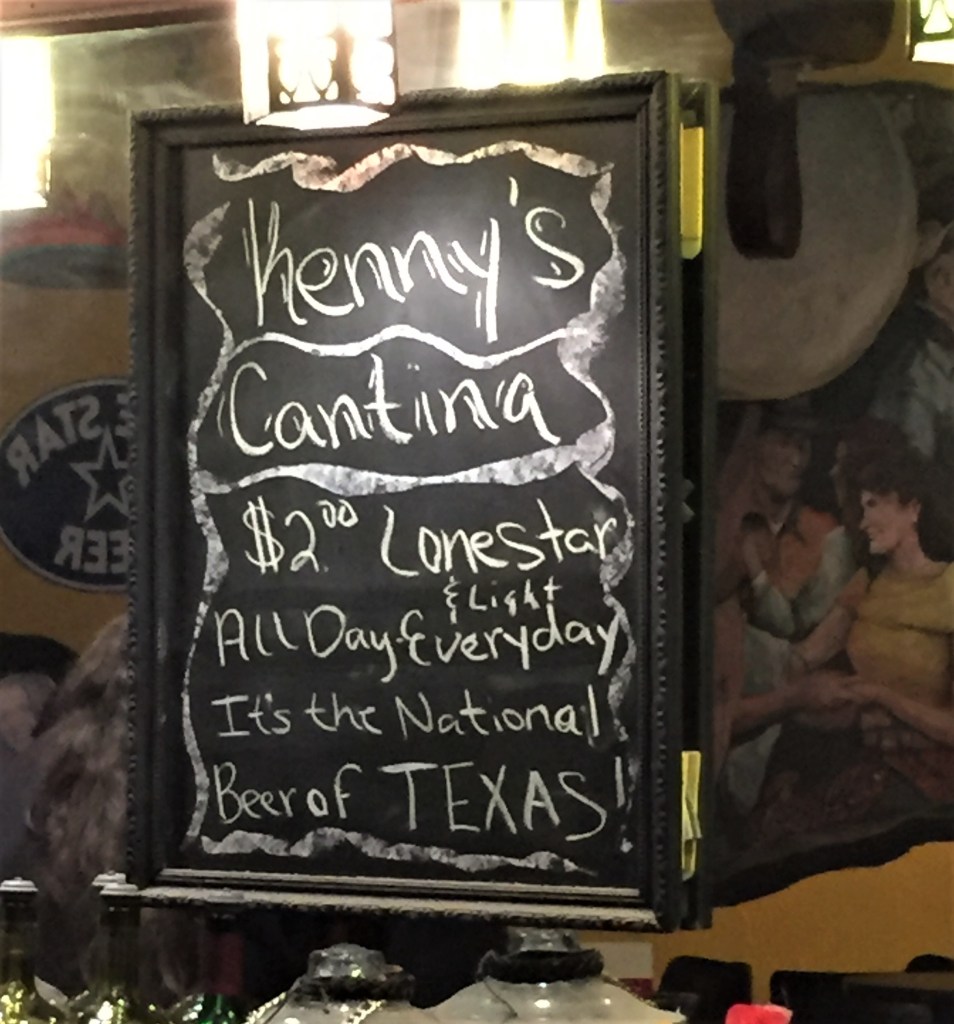 Kenny's
Cantina
$2.00 Lonestar
& Light
All Day-Everyday
It's the National
Beer of TEXAS!
STAR
BEER